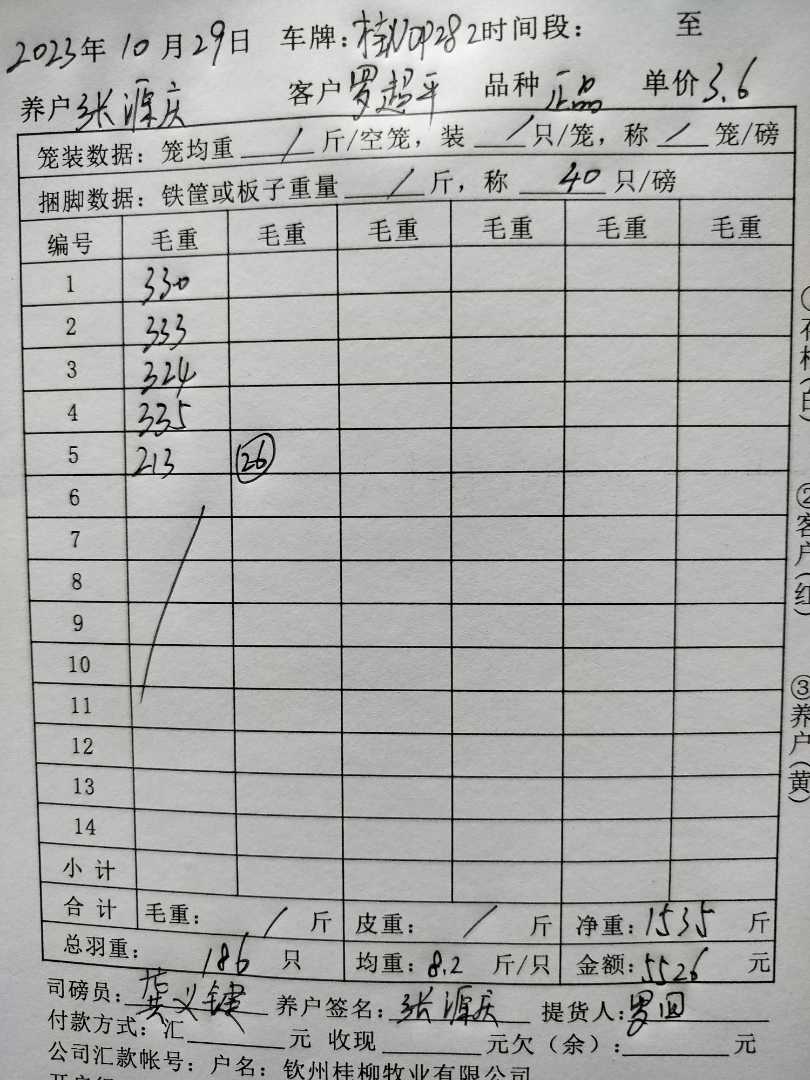 2023年10月29日 车牌:桂NDP282时间段: 至
养户 张源庆 客户 罗超平 品种 正品 单价 3.6
笼装数据: 笼均重 / 斤/空笼, 装 / 只/笼, 称 / 笼/磅
捆脚数据: 铁筐或板子重量 / 斤, 称 40 只/磅
编号 毛重 毛重 毛重 毛重 毛重 毛重
1 330
2 333
3 324
4 335
5 213 26
6
7
8
9
10
11
12
13
14
小计
合计 毛重: / 斤 皮重: / 斤 净重: 1535 斤
总羽重: 186 只 均重: 8.2 斤/只 金额: 5526 元
司磅员: 义键 养户签名: 张源庆 提货人: 罗
付款方式: 汇 元 收现 元欠(余): 元
公司汇款帐号: 户名: 钦州桂柳牧业有限公司
②客户(红)
③养户(黄)